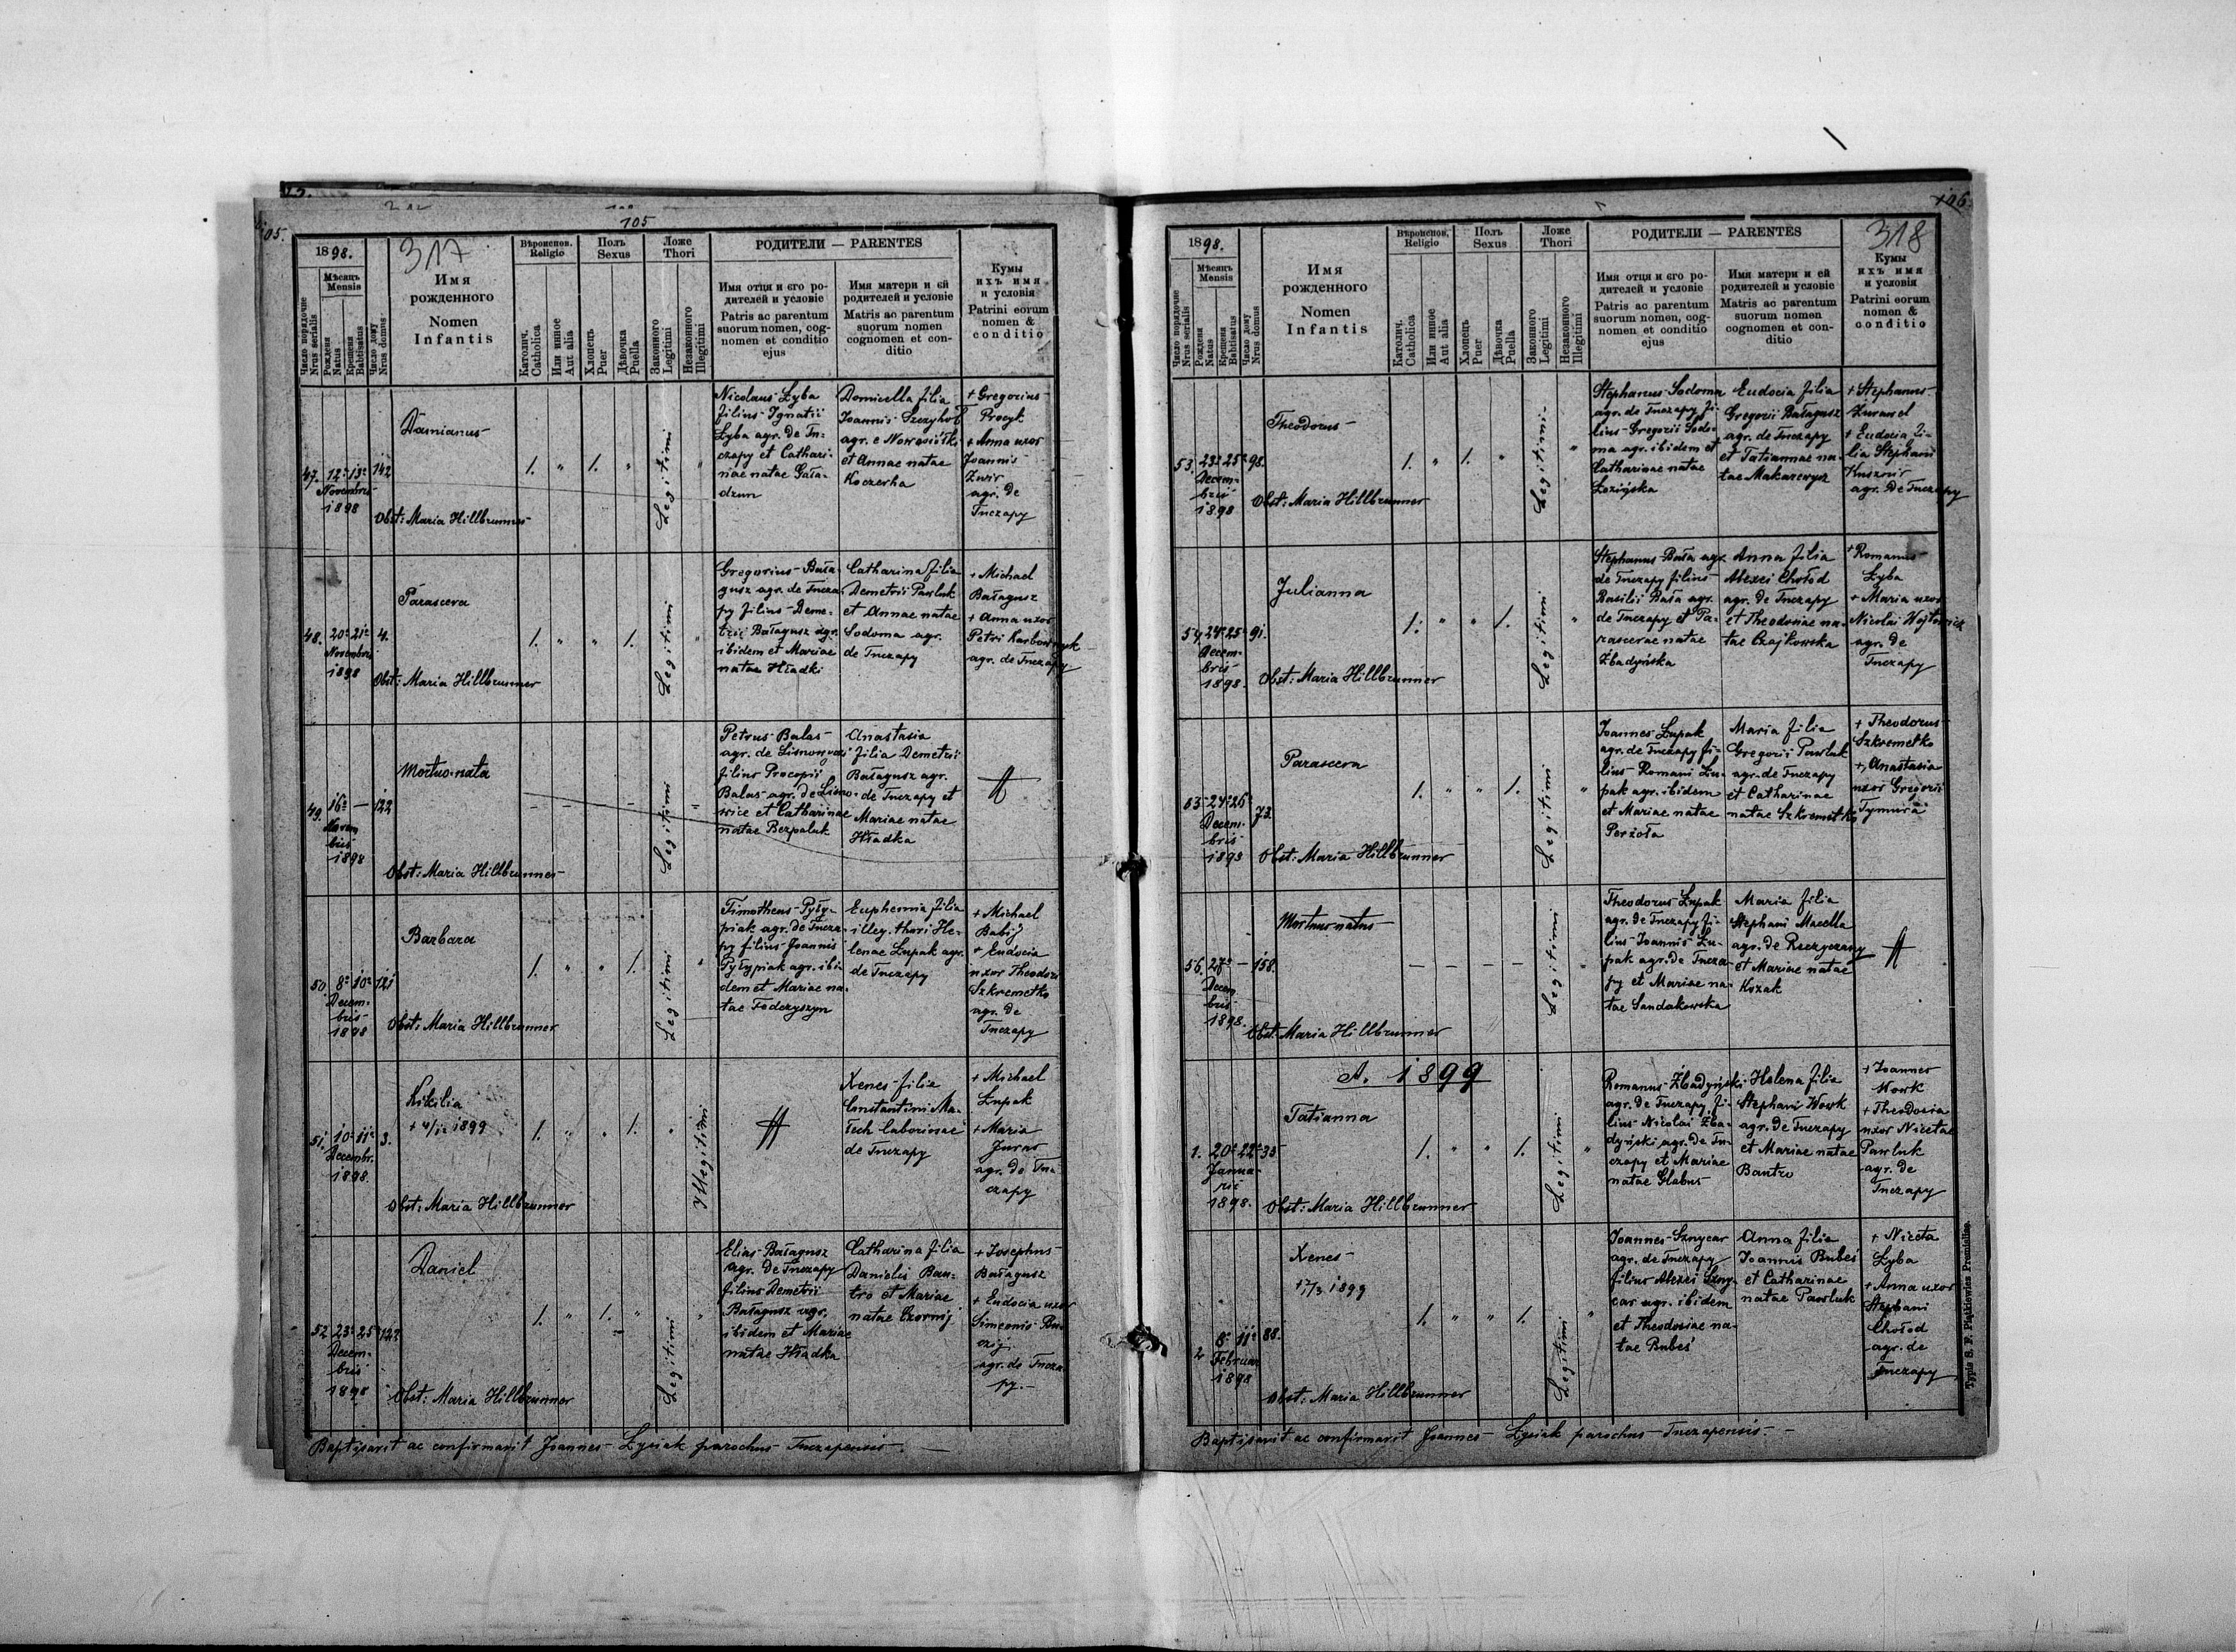 105
105.
1898.
317
Число порядочне
Nrus serialis
Мѣсяць
Mensis
Рожденя
Natus
Крещеня
Babtisatus
Число дому
Nrus domus
Имя
рожденного
Nomen
Infantis
Вѣроиспов.
Religio
Католич.
Catholica
Или инное
Aut alia
Полъ
Sexus
Хлопець
Puer
Дѣвочка
Puella
Ложе
Thori
Законного
Legitimi
Незаконного
Illegitimi
РОДИТЕЛИ — PARENTES
Имя отця и єго ро-
дителей и условіе
Patris ac parentum
suorum nomen, cog-
nomen et conditio
ejus
Имя матери и єй
родителей и условіе
Matris ac parentum
suorum nomen
cognomen et con-
ditio
Кумы
ихъ имя
и условія
Patrini eorum
nomen &
conditio
47. 12a 13a 142
Novembris
1898
Damianus
Obst: Maria Hillbrunner
1. " 1. "
Legitimi
Nicolaus Łyba
filius Ignatii
Łyba agr. de Tu-
czapy et Cathari-
nae natae Gała-
dzun
Domicella filia
Joannis
agr. e Nowosiółki
et Annae natae
Koczerha
+ Gregorius
Procyk
+ Anna uxor
Joannis
Zwir
agr. de
Tuczapy
48. 20a 21a 4.
Novembris
1898
Parasceva
Obst: Maria Hillbrunner
1. " " 1.
Legitimi "
Gregorius Bała-
gusz agr. de Tucza-
py filius Deme-
trii Bałagusz agr.
ibidem et Mariae
natae Hładki
Catharina filia
Demetrii Pawluk
et Annae natae
Sodoma agr.
de Tuczapy
+ Michael
Bałagusz
+ Anna uxor
Petri
agr. de Tuczapy
49. 16a — 122
Novem
bris
1898
Mortuo-nata
Obst: Maria Hillbrunner
Legitimi "
Petrus Balas
agr. de
filius Procopii
Balas agr. de Lisno-
wice et Catharinae
natae Bezpaluk
Anastasia
filia Demetrii
Bałagusz agr.
de Tuczapy et
Mariae natae
Hładka
50. 8a 10a 121
Decem-
bris
1898
Barbara
Obst: Maria Hillbrunner
1. " " 1.
Legitimi "
Timotheus Pyły-
piak agr. de Tucza-
py filius Joannis
Pyłypiak agr. ibi
dem et Mariae na-
tae Fedczyszyn
Euphemia filia
illeg. thori He-
lenae Łupak agr.
de Tuczapy
+ Michael
Babij
+ Eudocia
uxor Theodori
Szkremetko
agr. de
Tuczapy
51. 10a 11a 3.
Decembr.
1898.
Kikilia
+ 1899
Obst: Maria Hillbrunner
1. " " 1. "
Illegitimi
Xenes filia
Constantini Ma-
de Tuczapy
+ Michael
Łupak
+ Maria
agr. de Tu-
czapy
52 23a 25a 122
Decem-
bris
1898
Daniel
Obst: Maria Hillbrunner
1. " 1. "
Legitimi "
Elias Bałagusz
agr. de Tuczapy
filius Demetrii
Bałagusz agr.
ibidem et Mariae
natae Hładka
Catharina filia
Danielis Ban-
tro et Mariae
natae Czornij
+ Josephus
Bałagusz
+ Eudocia uxor
Simeonis
agr. de Tucza-
py.
Baptisavit ac confirmavit Joannes Łysiak parochus Tuczapensis.
106.
1898.
318
Число порядочне
Nrus serialis
Мѣсяць
Mensis
Рожденя
Natus
Крещеня
Babtisatus
Число дому
Nrus domus
Имя
рожденного
Nomen
Infantis
Вѣроиспов.
Religio
Католич.
Catholica
Или инное
Aut alia
Полъ
Sexus
Хлопець
Puer
Дѣвочка
Puella
Ложе
Thori
Законного
Legitimi
Незаконного
Illegitimi
РОДИТЕЛИ — PARENTES
Имя отця и єго ро-
дителей и условіе
Patris ac parentum
suorum nomen, cog-
nomen et conditio
ejus
Имя матери и єй
родителей и условіе
Matris ac parentum
suorum nomen
cognomen et con-
ditio
Кумы
ихъ имя
и условія
Patrini eorum
nomen &
conditio
53. 23a 25a 98.
Decem-
bris
1898
Theodorus
Obst: Maria Hillbrunner
1. " 1. "
Legitimi "
Stephanus Sodoma
agr. de Tuczapy fi-
lius Gregorii Sodo-
ma agr. ibidem et
Catharinae natae
Łozińska
Eudocia filia
Gregorii Bałagusz
agr. de Tuczapy
et Tatiannae na-
tae Makarewycz
+ Stephanus
Żurawel
+ Eudocia fi-
lia Stephani
Kusznir
agr. de Tuczapy
54. 24a 25a 91.
Decem-
bris
1898.
Julianna
Obst: Maria Hillbrunner
1. " " 1.
Legitimi "
Stephanus Bała agr.
de Tuczapy filius
Basilii Bała agr.
de Tuczapy et Pa-
rascevae natae
Żbadyńska
Anna filia
Alexei Chołod
agr. de Tuczapy
et Theodosiae na-
tae Czajkowska
+ Romanus
Łyba
+ Maria uxor
Nicolai Wojtowicz
agr. de
Tuczapy
24a 26a 73.
Decem-
bris
1898
Parasceva
Obst: Maria Hillbrunner
1. " " 1.
Legitimi "
Joannes Łupak
agr. de Tuczapy fi-
lius Romani Łu-
pak agr. ibidem
et Mariae natae
Perżoła
Maria filia
Gregorii Pawluk
agr. de Tuczapy
et Catharinae
natae Szkremetko
+ Theodorus
Szkremetko
+ Anastasia
uxor Gregorii
56. 27a — 158.
Decem
bris
1898.
Mortuus natus
Obst: Maria Hillbrunner
— — — —
Legitimi "
Theodorus Łupak
agr. de Tuczapy fi-
lius Joannis Łu-
pak agr. de Tucza-
py et Mariae na-
tae Sandakowska
Maria filia
Stephani Macełla
agr. de Rzeczyczany
et Mariae natae
Kozak
A. 1899
1. 20a 22a 35
Janua-
rii
1898.
Tatianna
Obst: Maria Hillbrunner
1. " " 1.
Legitimi "
Romanus Żbadyński
agr. de Tuczapy fi-
lius Nicolai Żba-
dyński agr. de Tu-
czapy et Mariae
natae Słabus
Helena filia
Stephani Wowk
agr. de Tuczapy
et Mariae natae
Bantro
+ Joannes
Wowk
+ Theodosia
uxor Nicetae
Pawluk
agr. de
Tuczapy
2 8a 11a 88.
Februar
1898
Xenes
+ 17/3 1899
Obst: Maria Hillbrunner
1. " " 1.
Legitimi "
Joannes Sznycar
agr. de Tuczapy
filius Alexei Szny-
car agr. ibidem
et Theodosiae na-
tae Bubeś
Anna filia
Joannis Bubeś
et Catharinae
natae Pawluk
+ Niceta
Łyba
+ Anna uxor
Stephani
Chołod
agr. de
Tuczapy
Baptisavit ac confirmavit Joannes Łysiak parochus Tuczapensis.
Typis S. F. Piątkiewicz Premisliae.